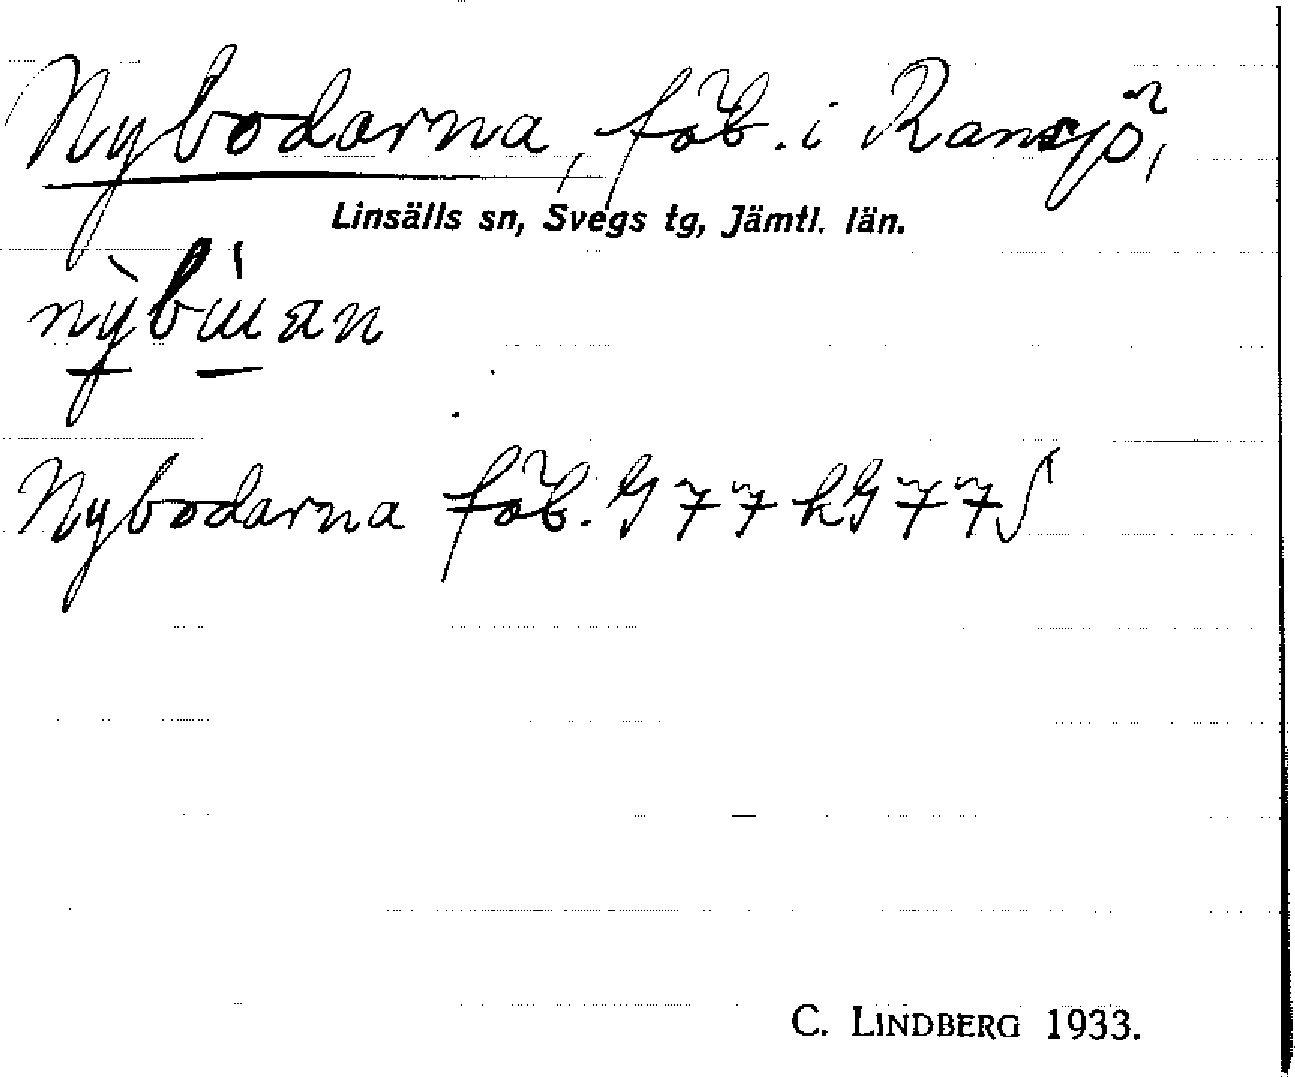 Nybodarna, fäb. i Ransjö,
Linsälls sn, Svegs tg, Jämtl. län.
Nybodarna fäb. G 77 hG 77
C. LINDBERG 1933.